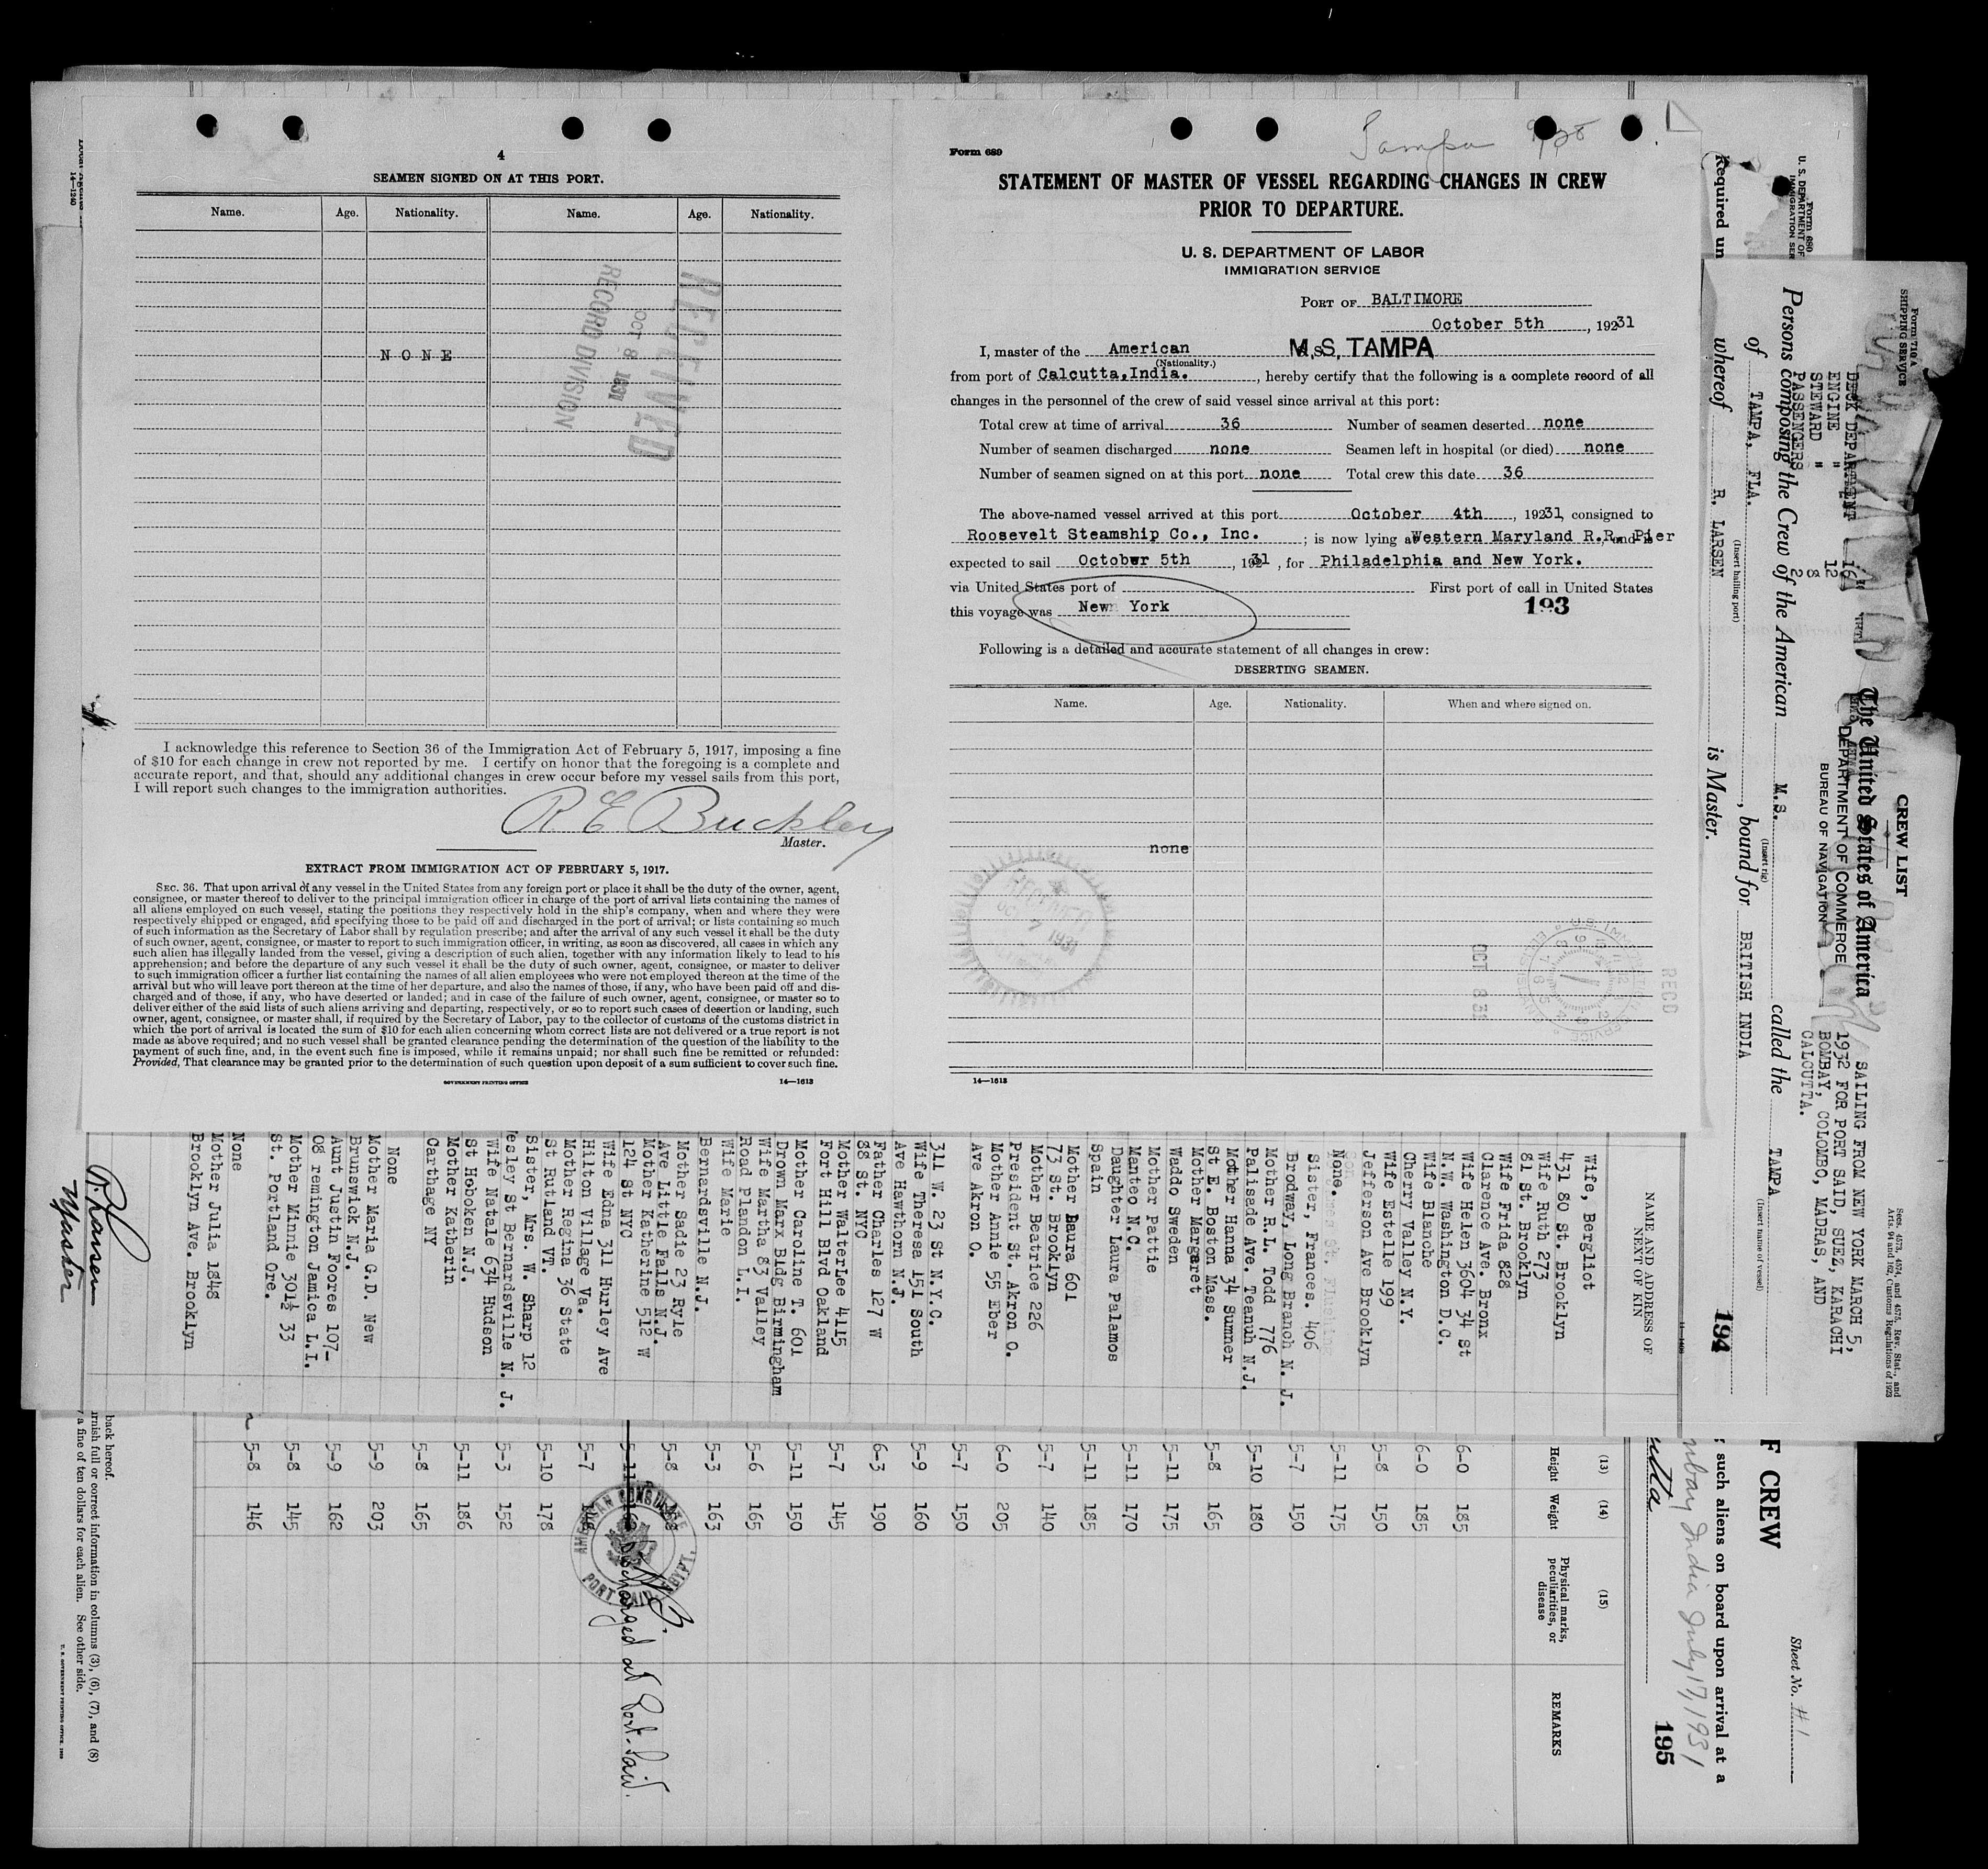 Tampa
4
SEAMEN SIGNED ON AT THIS PORT.
Name. Age. Nationality. Name. Age. Nationality.
NONE
RECEIVED
OCT 8 1931
RECORD DIVISION
I acknowledge this reference to Section 36 of the Immigration Act of February 5, 1917, imposing a fine
of $10 for each change in crew not reported by me. I certify on honor that the foregoing is a complete and
accurate report, and that, should any additional changes in crew occur before my vessel sails from this port,
I will report such changes to the immigration authorities.
R E Buckley
Master.
EXTRACT FROM IMMIGRATION ACT OF FEBRUARY 5, 1917.
SEC. 36. That upon arrival of any vessel in the United States from any foreign port or place it shall be the duty of the owner, agent,
consignee, or master thereof to deliver to the principal immigration officer in charge of the port of arrival lists containing the names of
all aliens employed on such vessel, stating the positions they respectively hold in the ship's company, when and where they were
respectively shipped or engaged, and specifying those to be paid off and discharged in the port of arrival; or lists containing so much
of such information as the Secretary of Labor shall by regulation prescribe; and after the arrival of any such vessel it shall be the duty
of such owner, agent, consignee, or master to report to such immigration officer, in writing, as soon as discovered, all cases in which any
such alien has illegally landed from the vessel, giving a description of such alien, together with any information likely to lead to his
apprehension; and before the departure of any such vessel it shall be the duty of such owner, agent, consignee, or master to deliver
to such immigration officer a further list containing the names of all alien employees who were not employed thereon at the time of the
arrival but who will leave port thereon at the time of her departure, and also the names of those, if any, who have been paid off and dis-
charged and of those, if any, who have deserted or landed; and in case of the failure of such owner, agent, consignee, or master so to
deliver either of the said lists of such aliens arriving and departing, respectively, or so to report such cases of desertion or landing, such
owner, agent, consignee, or master shall, if required by the Secretary of Labor, pay to the collector of customs of the customs district in
which the port of arrival is located the sum of $10 for each alien concerning whom correct lists are not delivered or a true report is not
made as above required; and no such vessel shall be granted clearance pending the determination of the question of the liability to the
payment of such fine, and, in the event such fine is imposed, while it remains unpaid; nor shall such fine be remitted or refunded:
Provided, That clearance may be granted prior to the determination of such question upon deposit of a sum sufficient to cover such fine.
GOVERNMENT PRINTING OFFICE 14—1613
Form 689
STATEMENT OF MASTER OF VESSEL REGARDING CHANGES IN CREW
PRIOR TO DEPARTURE.
U. S. DEPARTMENT OF LABOR
IMMIGRATION SERVICE
PORT OF BALTIMORE
October 5th, 1931
I, master of the American M.S. TAMPA
(Nationality.)
from port of Calcutta, India., hereby certify that the following is a complete record of all
changes in the personnel of the crew of said vessel since arrival at this port:
Total crew at time of arrival 36 Number of seamen deserted none
Number of seamen discharged none Seamen left in hospital (or died) none
Number of seamen signed on at this port none Total crew this date 36
The above-named vessel arrived at this port October 4th, 1931, consigned to
Roosevelt Steamship Co., Inc. ; is now lying at Western Maryland R.R. Pier
expected to sail October 5th, 1931, for Philadelphia and New York.
via United States port of First port of call in United States
this voyage was New York 193
Following is a detailed and accurate statement of all changes in crew:
DESERTING SEAMEN.
Name. Age. Nationality. When and where signed on.
none
7 1931
OCT 8 31
RECD
14—1613
Form 710 A
SHIPPING SERVICE
CREW LIST
Secs. 4573, 4574, and 4575, Rev. Stat., and
Arts. 94 and 162, Customs Regulations of 1923
The United States of America
DEPARTMENT OF COMMERCE
BUREAU OF NAVIGATION
DECK DEPARTMENT 16
ENGINE " 12
STEWARD " 8
PASSENGERS 2
SAILING FROM NEW YORK MARCH 5,
1932 FOR PORT SAID, SUEZ, KARACHI
BOMBAY, COLOMBO, MADRAS, AND
CALCUTTA.
Persons composing the Crew of the American M.S. called the TAMPA
(Insert rig) (Insert name of vessel)
of TAMPA, FLA., bound for BRITISH INDIA
(Insert hailing port)
whereof R. LARSEN is Master.
194
Form 680
U. S. DEPARTMENT OF
IMMIGRATION SER
Required un
NAME AND ADDRESS OF
NEXT OF KIN
Wife, Bergliot
431 80 St. Brooklyn
Wife Ruth 273
81 St. Brooklyn
Wife Frida 828
Clarence Ave. Bronx
Wife Helen 3604 34 St
N.W. Washington D.C.
Wife Blanche
Cherry Valley N.Y.
Wife Estelle 199
Jefferson Ave Brooklyn
None.
Sister, Frances. 406
Brodway, Long Branch N. J.
Mother R.L. Todd 776
Palisade Ave. Teanuh N.J.
Mother Hanna 34 Sumner
St E. Boston Mass.
Mother Margaret
Waddo Sweden
Mother Pattie
Manteo N.C.
Daughter Laura Palamos
Spain
Mother Laura 601
73 St. Brooklyn
Mother Beatrice 226
President St. Akron O.
Mother Annie 55 Eber
Ave Akron O.
311 W. 23 St N.Y.C.
Wife Theresa 151 South
Ave Hawthorn N.J.
Father Charles 127 W
88 St. NYC
Mother WalterLee 4115
Fort Hill Blvd Oakland
Mother Caroline T. 601
Drown Marx Bldg Birmingham
Wife Martha 83 Valley
Road Plandon L.I.
Wife Marie
Bernardsville N.J.
Mother Sadie 23 Ryle
Ave Little Falls N.J.
Mother Katherine 512 W
124 St NYC
Wife Edna 311 Hurley Ave
Hilton Village Va.
Mother Regina 36 State
St Rutland VT.
Sister, Mrs. W. Sharp 12
esley St Bernardsville N. J.
Wife Natale 634 Hudson
St Hoboken N.J.
Mother Katherin
Carthage NY
None
Mother Maria G.D. New
Brunswick N.J.
Aunt Justin Foores 107-
08 remington Jamica L.I.
Mother Minnie 301½ 33
St. Portland Ore.
None
Mother Julia 1848
Brooklyn Ave. Brooklyn
R Larsen
Master
F CREW
Sheet No. #1
such aliens on board upon arrival at a
mbay India July 17, 1931
utta
195
(13) (14) (15)
Height Weight Physical marks, peculiarities, or disease REMARKS
6-0 185
6-0 185
5-8 150
5-11 175
5-7 150
5-10 180
5-8 165
5-11 175
5-11 170
5-11 185
5-7 140
6-0 205
5-7 150
5-9 160
6-3 190
5-7 145
5-11 150
5-6 165
5-3 163
5-8
5-11 Discharged at Port-Said.
5-7
5-10 178
5-3 152
5-11 186
5-8 165
5-9 203
5-9 162
5-8 145
5-8 146
AMERICAN CONSULATE
PORT SAID, EGYPT.
back hereof.
rnish full or correct information in columns (3), (6), (7), and (8)
a fine of ten dollars for each alien. See other side.
U. S. GOVERNMENT PRINTING OFFICE
14—1240